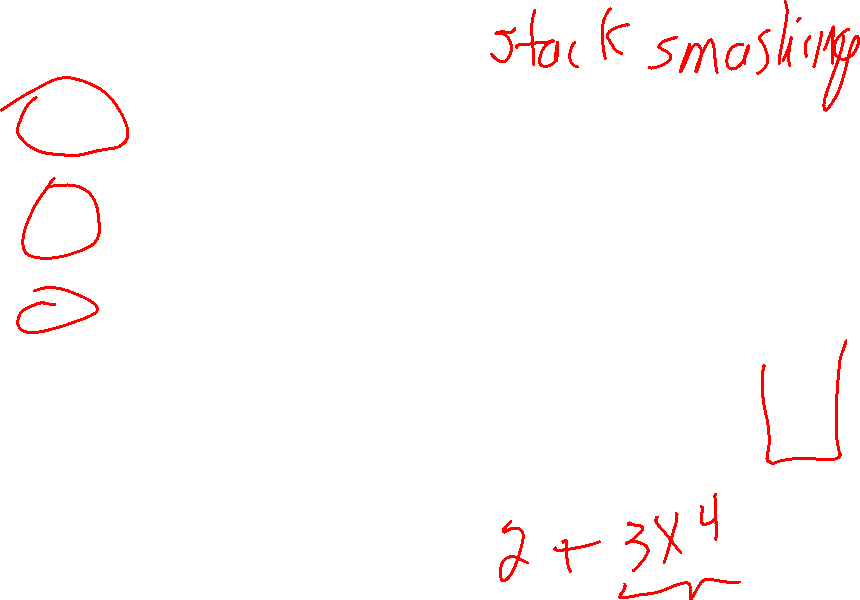 stack smashing
2 + 3 x 4